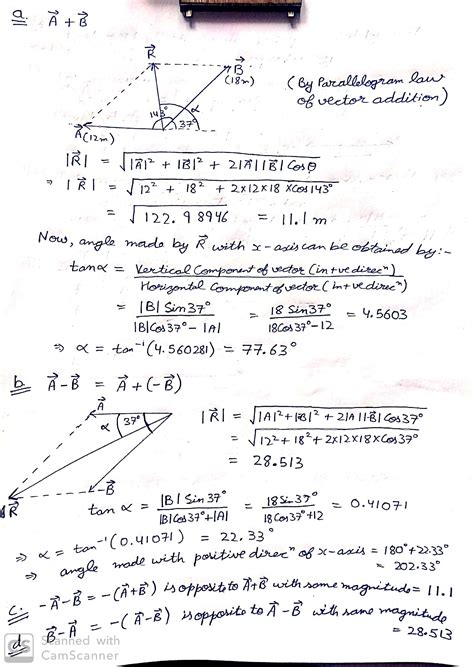 a. A⃗ + B⃗
R⃗
B⃗
(18m)
(By Parallelogram law
of vector addition)
143°
α
37°
A⃗(12m)
|R⃗| = √|A⃗|² + |B⃗|² + 2|A⃗||B⃗| Cosθ
⇒ |R⃗| = √12² + 18² + 2×12×18 ×Cos143°
= √122.98946 = 11.1 m
Now, angle made by R⃗ with x-axis can be obtained by:-
tanα = Vertical Component of vector (in +ve direcⁿ)
Horizontal Component of vector (in +ve direcⁿ)
= |B| Sin37° / |B|Cos37° - |A| = 18 Sin37° / 18Cos37° - 12 = 4.5603
⇒ α = tan⁻¹(4.560281) = 77.63°
b. A⃗ - B⃗ = A⃗ + (-B⃗)
A⃗
α
37°
-B⃗
R⃗
|R⃗| = √|A|² + |B|² + 2|A||B| Cos37°
= √12² + 18² + 2×12×18×Cos37°
= 28.513
tanα = |B| Sin37° / |B|Cos37° + |A| = 18Sin37° / 18Cos37° + 12 = 0.41071
⇒ α = tan⁻¹(0.41071) = 22.33°
⇒ angle made with positive direcⁿ of x-axis = 180° + 22.33°
= 202.33°
c. -A⃗ - B⃗ = -(A⃗ + B⃗) is opposite to A⃗ + B⃗ with same magnitude = 11.1
d. B⃗ - A⃗ = -(A⃗ - B⃗) is opposite to A⃗ - B⃗ with same magnitude
= 28.513
CS Scanned with
CamScanner